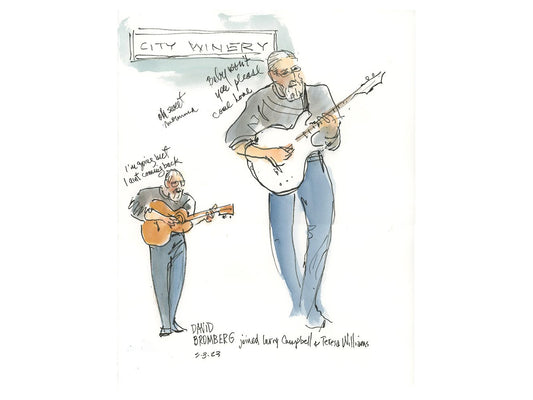 CITY WINERY
Baby won't
you please
come home
oh sweet
momma
I'm gone but
I aint coming back
DAVID
BROMBERG joined Larry Campbell & Teresa Williams
5.3.23